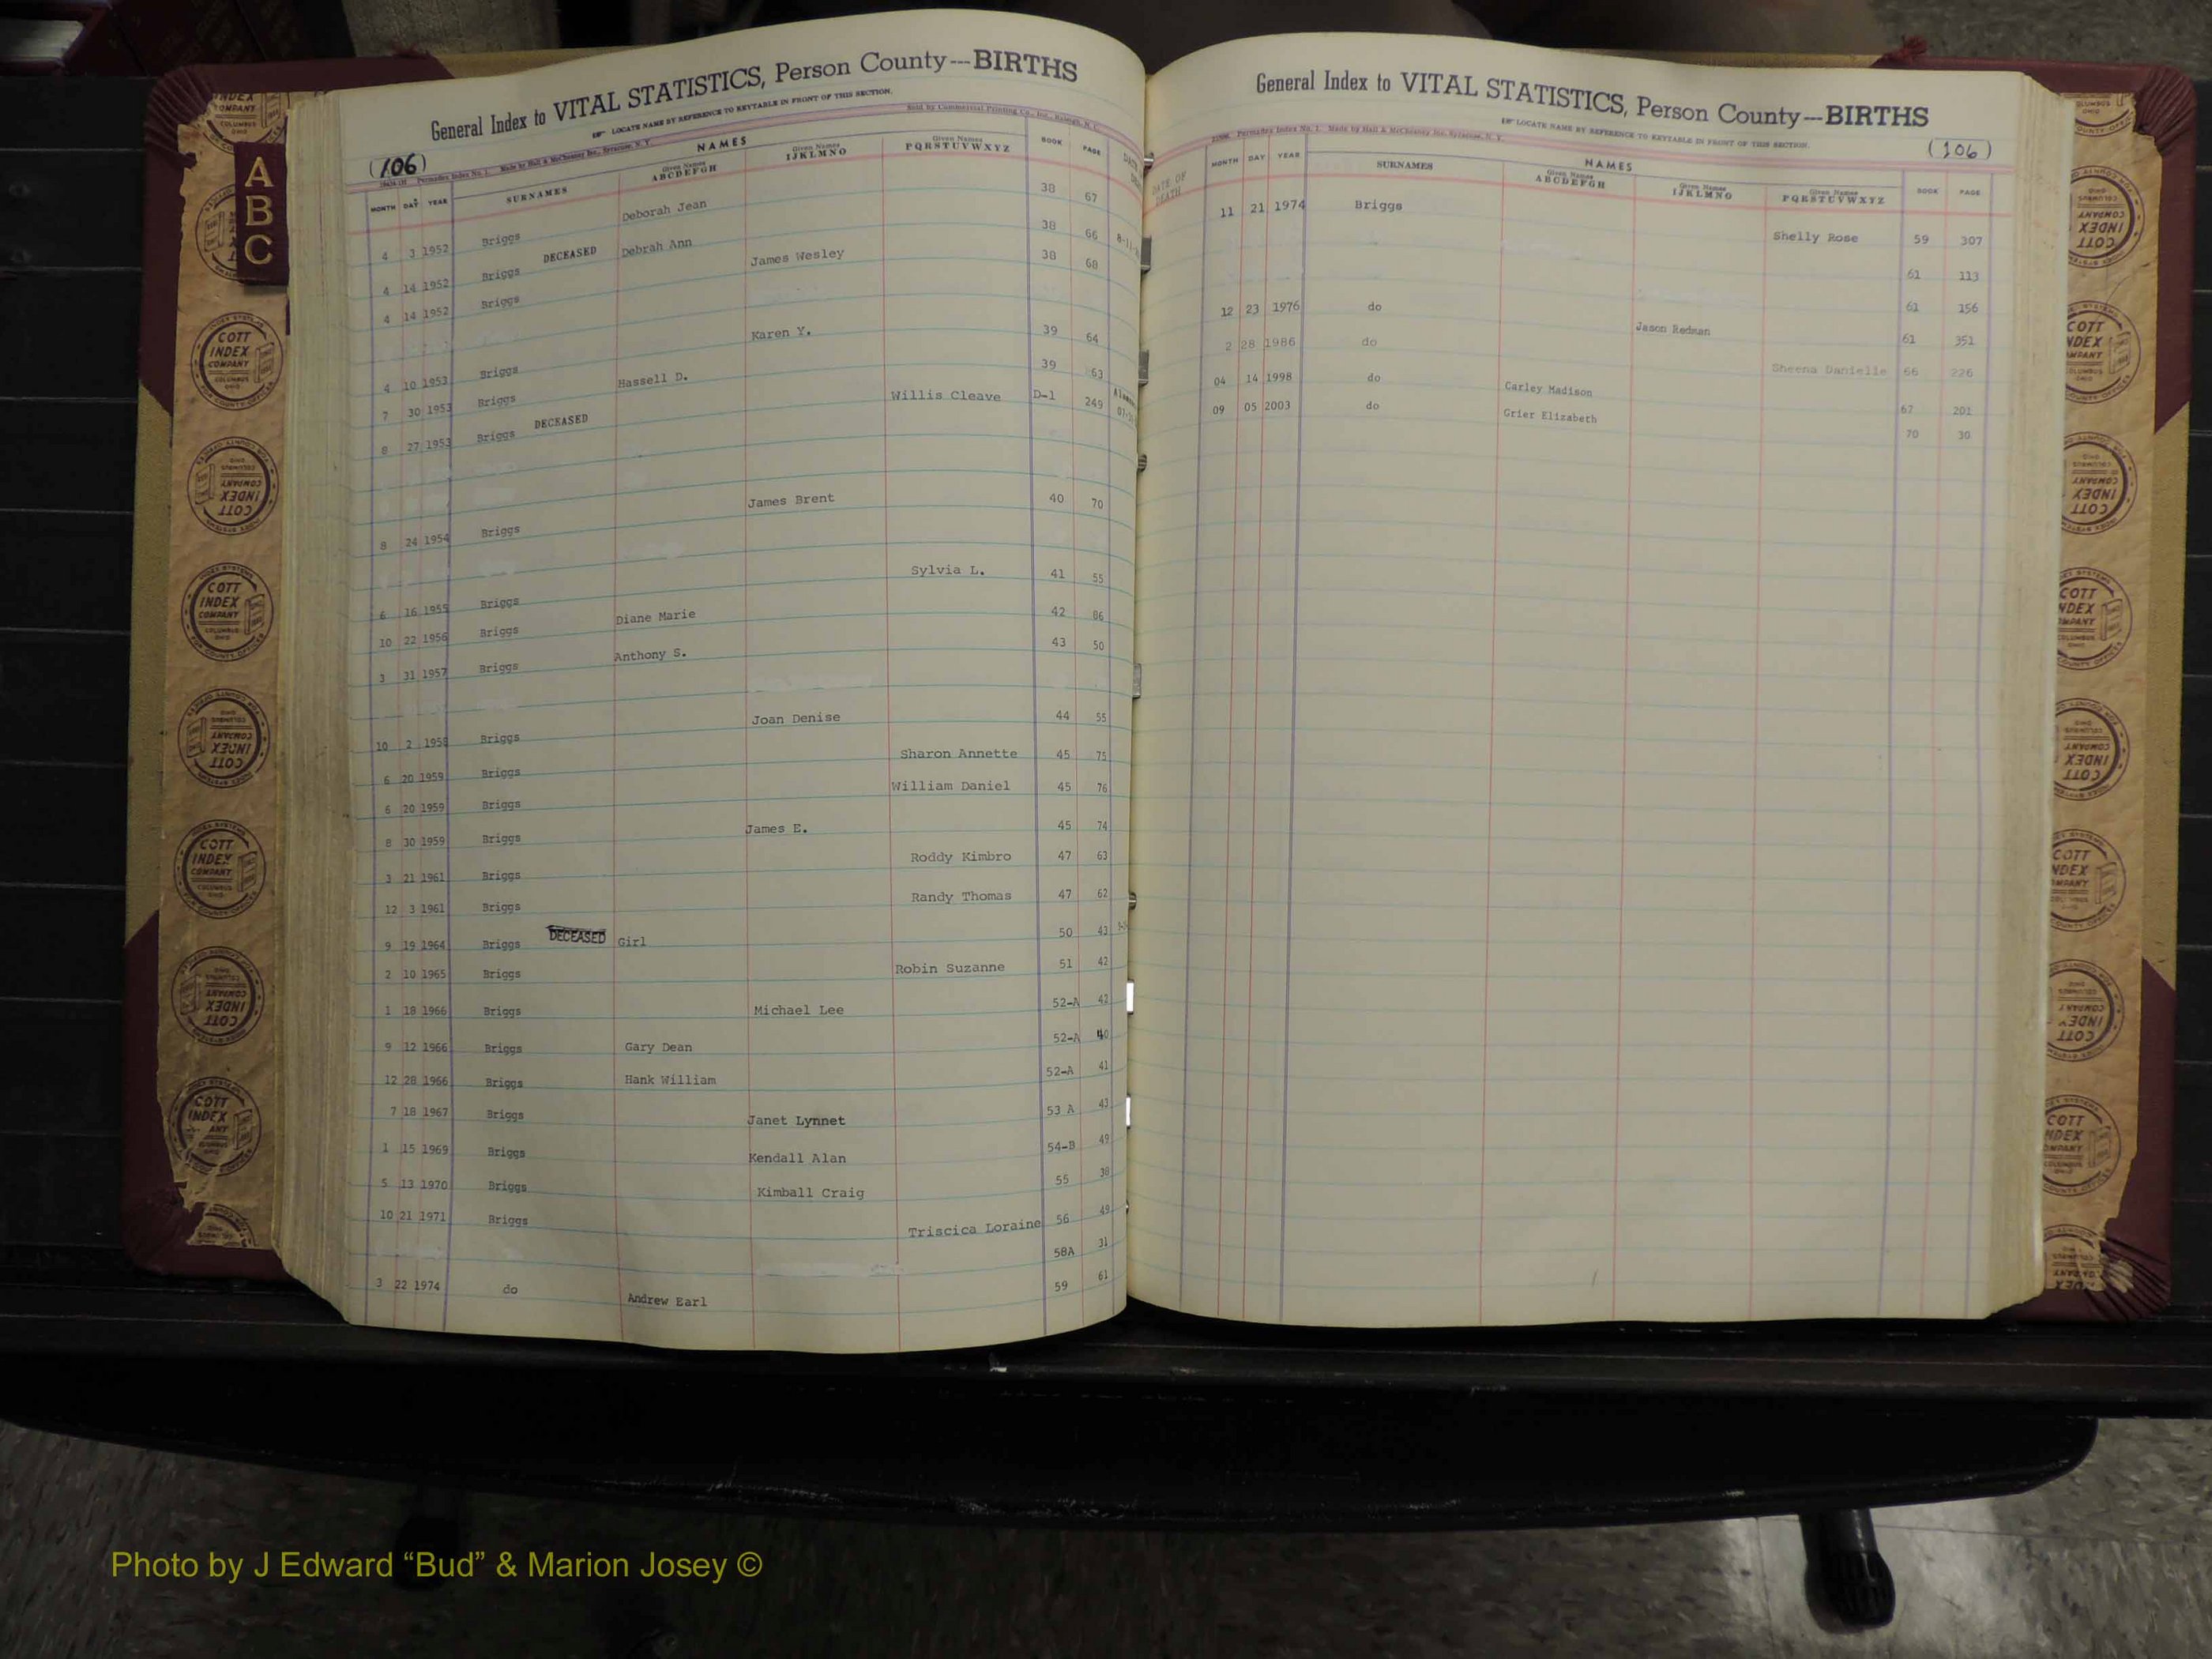 General Index to VITAL STATISTICS, Person County---BIRTHS
LOCATE NAME BY REFERENCE TO KEYTABLE IN FRONT OF THIS SECTION.
(106) Permadex Index No. 1. Made by Hall & McChesney Inc., Syracuse, N. Y. Sold by Commercial Printing Co., Inc., Raleigh, N. C.
MONTH DAY YEAR SURNAMES NAMES Given Names ABCDEFGH Given Names IJKLMNO Given Names PQRSTUVWXYZ BOOK PAGE
4 3 1952 Briggs Deborah Jean 38 67
4 14 1952 Briggs DECEASED Debrah Ann 38 66
4 14 1952 Briggs James Wesley 38 68
4 10 1953 Briggs Karen Y. 39 64
7 30 1953 Briggs Hassell D. 39 63
8 27 1953 Briggs DECEASED Willis Cleave D-1 249
8 24 1954 Briggs James Brent 40 70
6 16 1955 Briggs Sylvia L. 41 55
10 22 1956 Briggs Diane Marie 42 86
3 31 1957 Briggs Anthony S. 43 50
10 2 1958 Briggs Joan Denise 44 55
6 20 1959 Briggs Sharon Annette 45 75
6 20 1959 Briggs William Daniel 45 76
8 30 1959 Briggs James E. 45 74
3 21 1961 Briggs Roddy Kimbro 47 63
12 3 1961 Briggs Randy Thomas 47 62
9 19 1964 Briggs DECEASED Girl 50 43
2 10 1965 Briggs Robin Suzanne 51 42
1 18 1966 Briggs Michael Lee 52-A 42
9 12 1966 Briggs Gary Dean 52-A 40
12 28 1966 Briggs Hank William 52-A 41
7 18 1967 Briggs Janet Lynnet 53 A 43
1 15 1969 Briggs Kendall Alan 54-B 49
5 13 1970 Briggs Kimball Craig 55 38
10 21 1971 Briggs Triscica Loraine 56 49
58A 31
3 22 1974 do Andrew Earl 59 61
General Index to VITAL STATISTICS, Person County---BIRTHS
LOCATE NAME BY REFERENCE TO KEYTABLE IN FRONT OF THIS SECTION.
Permadex Index No. 1. Made by Hall & McChesney Inc. Syracuse, N. Y. (106)
DATE OF DEATH MONTH DAY YEAR SURNAMES NAMES Given Names ABCDEFGH Given Names IJKLMNO Given Names PQRSTUVWXYZ BOOK PAGE
11 21 1974 Briggs Shelly Rose 59 307
61 113
12 23 1976 do Jason Redman 61 156
61 351
2 28 1986 do Sheena Danielle 66 226
04 14 1998 do Carley Madison 67 201
09 05 2003 do Grier Elizabeth 70 30
A
B
C
COTT INDEX COMPANY
Photo by J Edward “Bud” & Marion Josey ©